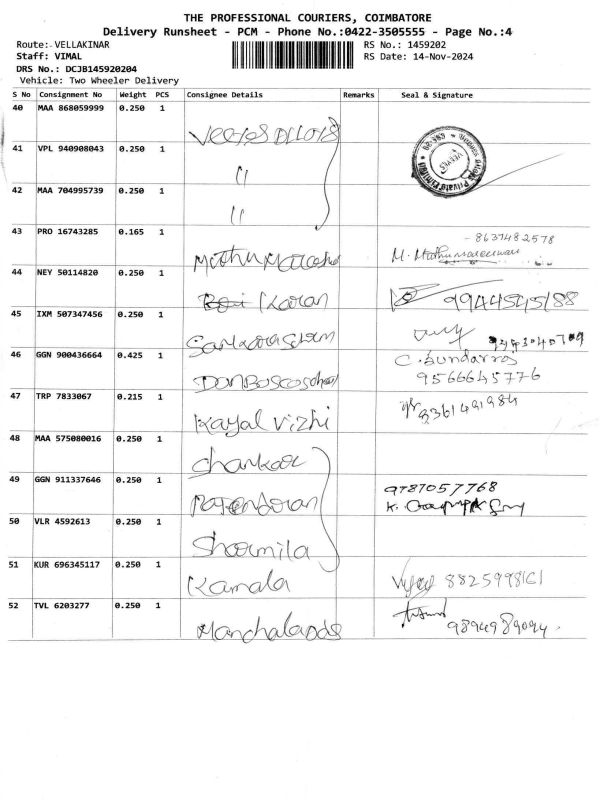 THE PROFESSIONAL COURIERS, COIMBATORE
Delivery Runsheet - PCM - Phone No.:0422-3505555 - Page No.:4
Route: VELLAKINAR RS No.: 1459202
Staff: VIMAL RS Date: 14-Nov-2024
DRS No.: DCJB145920204
Vehicle: Two Wheeler Delivery
S No Consignment No Weight PCS Consignee Details Remarks Seal & Signature
40 MAA 868059999 0.250 1
41 VPL 940908043 0.250 1 "
42 MAA 704995739 0.250 1 "
43 PRO 16743285 0.165 1 - 8637482578
44 NEY 50114820 0.250 1 Karan 9944545188
45 IXM 507347456 0.250 1
46 GGN 900436664 0.425 1 Don Bosco School C. Sundarraj
9566645776
47 TRP 7833067 0.215 1 Kayal Vizhi 9361491984
48 MAA 575080016 0.250 1 Shankar
49 GGN 911337646 0.250 1 9787057768
50 VLR 4592613 0.250 1 Sharmila
51 KUR 696345117 0.250 1 Kamala
52 TVL 6203277 0.250 1 9894989094